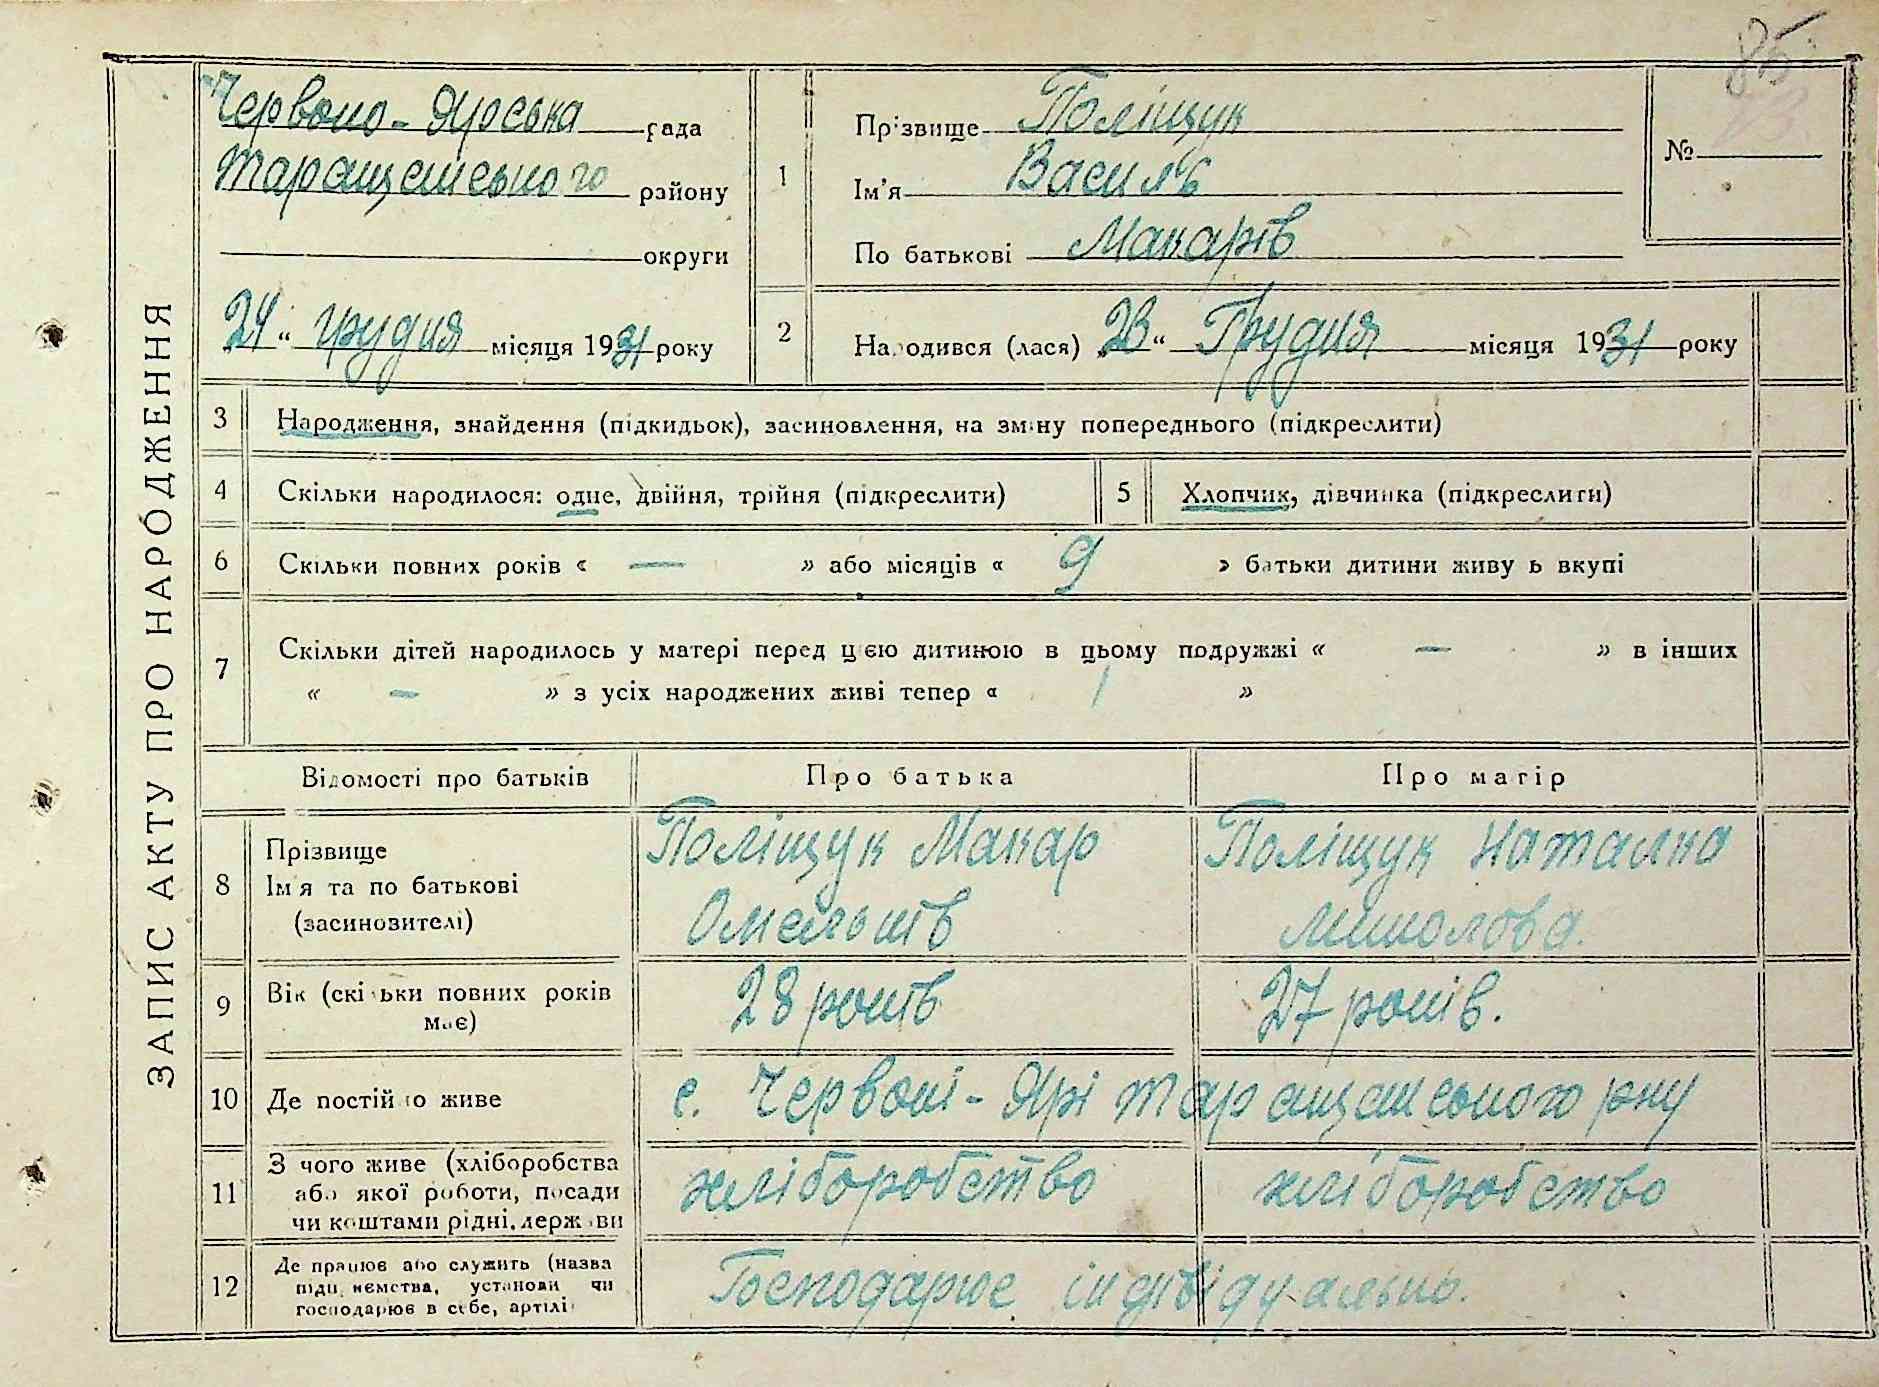 85
ЗАПИС АКТУ ПРО НАРОДЖЕННЯ
Червоно-Ярська рада
Таращанського району
округи
24 " грудня місяця 1931 року
1
Прізвище Поліщук
Ім'я Василь
По батькові Макарів
№
2
Народився (лася) „23" Грудня місяця 1931 року
3 Народження, знайдення (підкидьок), засиновлення, на зміну попереднього (підкреслити)
4 Скільки народилося: одне, двійня, трійня (підкреслити) 5 Хлопчик, дівчинка (підкреслити)
6 Скільки повних років « — » або місяців « 9 » батьки дитини живуть вкупі
7 Скільки дітей народилось у матері перед цією дитиною в цьому подружжі « — » в інших
« — » з усіх народжених живі тепер « 1 »
Відомості про батьків Про батька Про матір
8 Прізвище
Імя та по батькові
(засиновителі)
Поліщук Макар
Омельків
Поліщук Наталка
9 Вік (скільки повних років
має)
28 років 27 років.
10 Де постійно живе с. Червоні-Ярі Таращанського рну
11 З чого живе (хліборобства
або якої роботи, посади
чи коштами рідні, держави
хліборобство хліборобство
12 Де працює або служить (назва
підприємства, установи чи
господарює в себе, артілі
Господарює індивідуально.